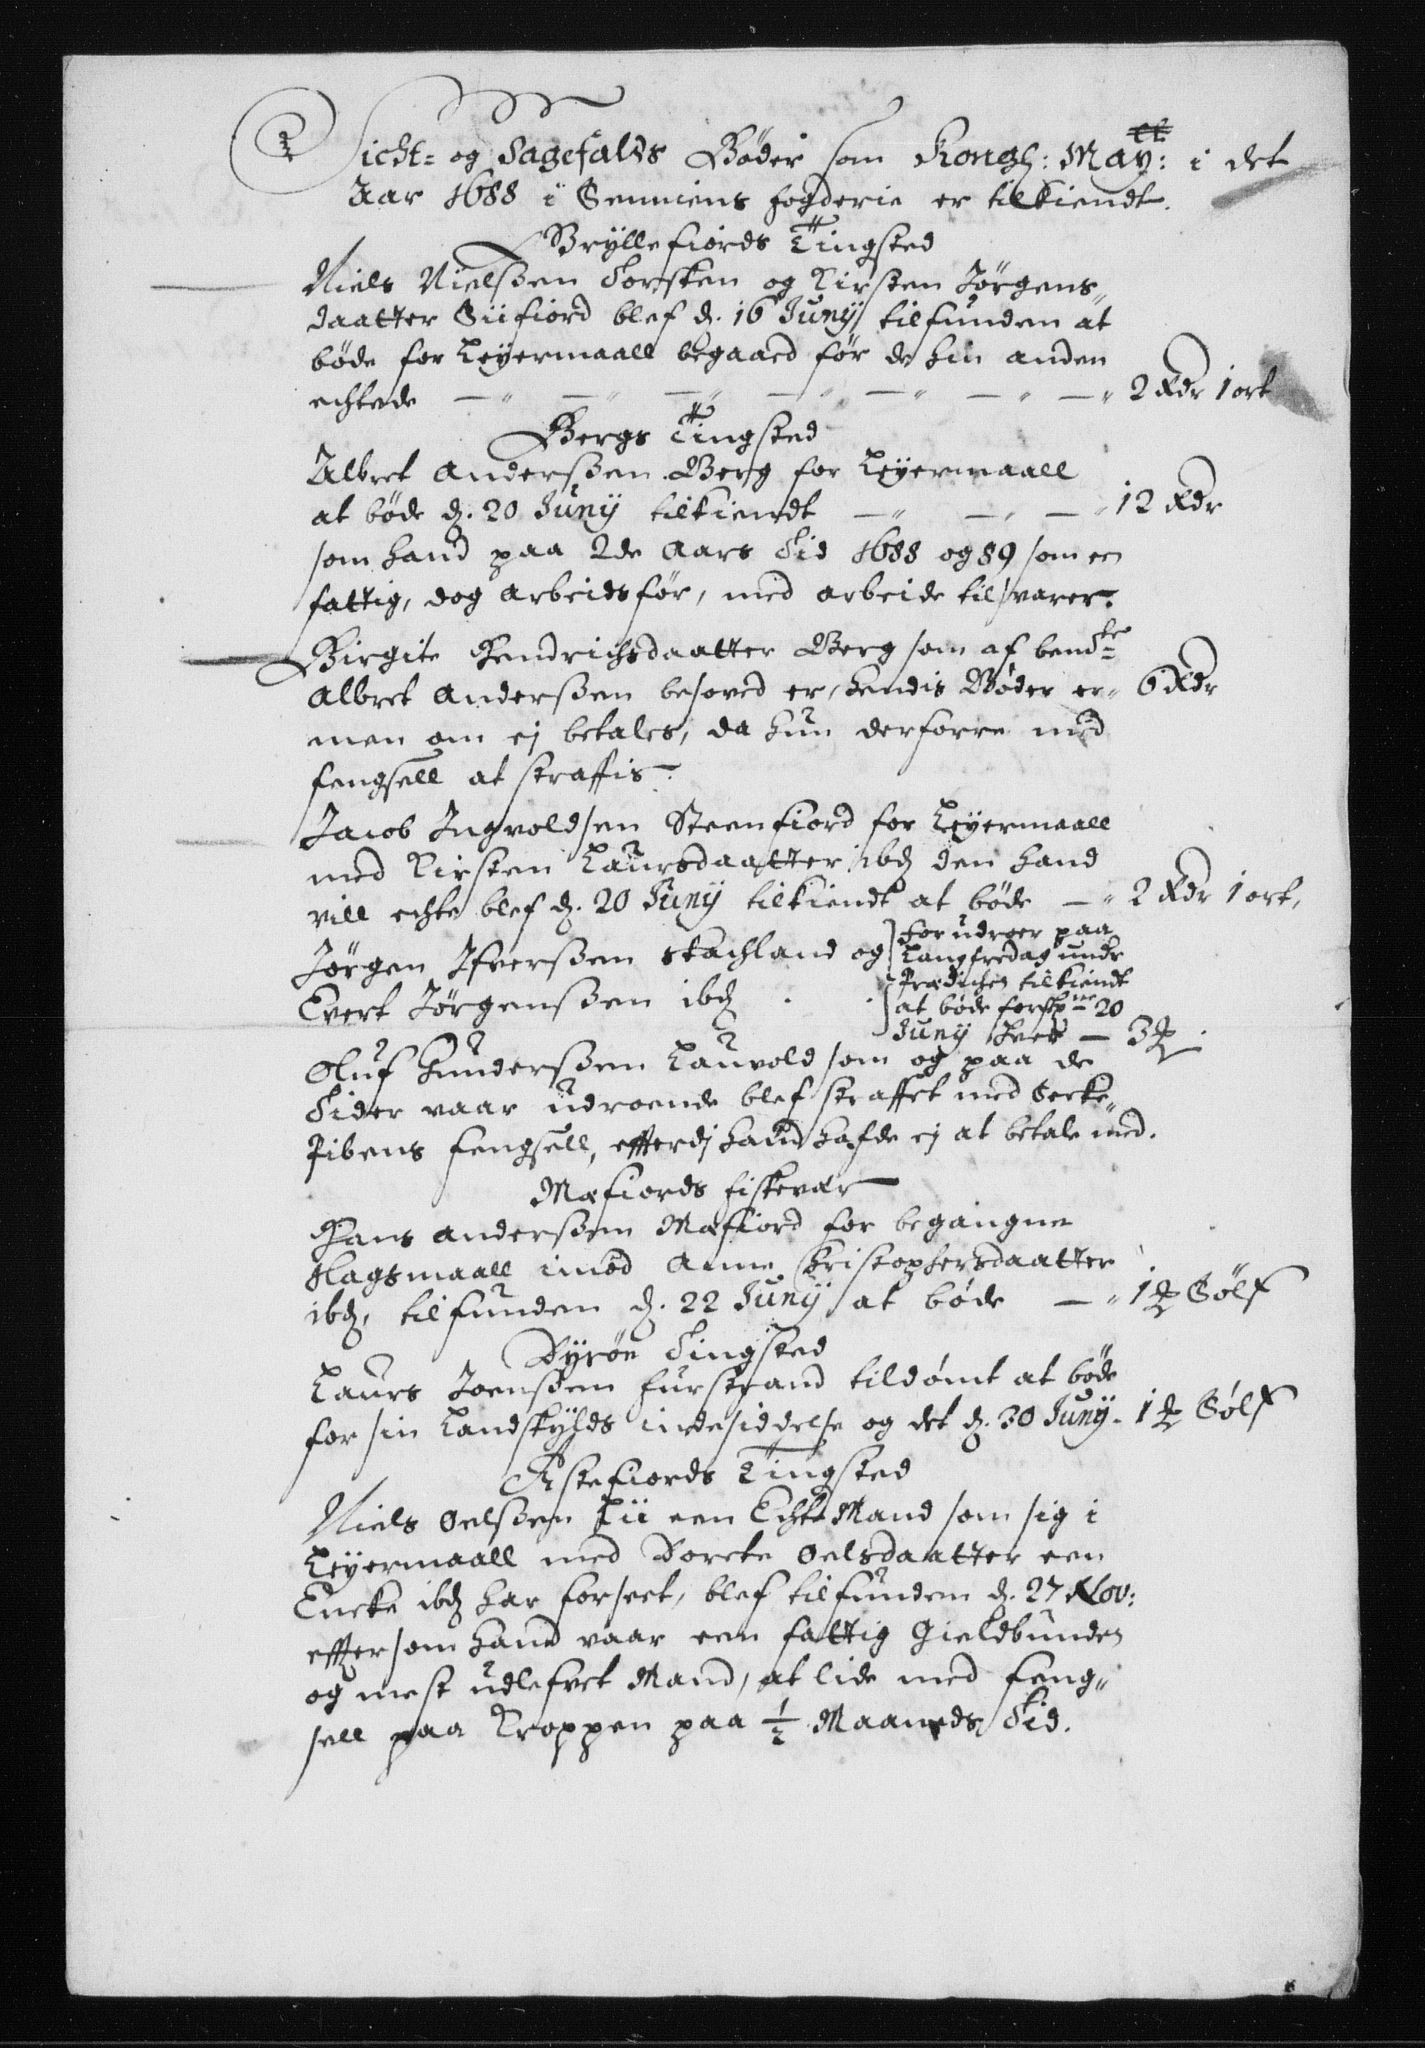 Sicht- og Sagefalds Bøder som Kongl: May:tt i det
Aar 1688 i Senniens fogderie er tilkiendt.
Gryllefiords Tingsted
Niels Nielsßen Torsken og Kirsten Jørgens„
daatter Siifiord blef d. 16 Junÿ tilfunden at
bøde for Leÿermaall begaaed før de hin anden
echtede — „ — „ — „ — „ — „ — „ — „ 2 Rdr 1 ort
Bergs Tingsted
Albret Anderßen Berg for Leÿermaall
at bøde d. 20 Junÿ tilkiendt — „ — „ — „ 12 Rdr
som hand paa 2de Aars Tid 1688 og 89 som en
fattig, dog arbeidsfør, med arbeide tilsvarer.
Birgite Hendrichsdaatter Berg som af bendte
Albret Anderßen besoved er, hendis Bøder er „ 6 Rdr
men om ej betales, da hun derforre med
fengsell at straffis.
Jacob Ingvoldsen Steenfiord for Leÿermaall
med Kirsten Laursdaatter ibd den hand
vill echte blef d. 20 Junÿ tilkiendt at bøde — „ 2 Rdr 1 ort,
Jørgen Ifverßen Skachland og
Evert Jørgenßen ibd
for udroer paa
Langfredag under
Prædichen tilkiendt
at bøde forskne 20
Junÿ hver — 3 ℔.
Oluf Gunderßen Lauvold som og paa de
Tider vaar udroende blef straffet med Secke„
Pibens fengsell, efterdj hand hafde ej at betale med.
Mefiords fiskevær
Hans Anderßen Mefiord for begangne
slagsmaall imod Anne Christophersdaatter
ibd, tilfunden d. 22 Junÿ at bøde — „ 1 ℔ Sølf
Dÿrøe Tingsted
Laurs Joenßen furstrand tildømt at bøde
for sin Landskÿlds indesiddelse og det d. 30 Junÿ - 1 ℔ Sølf
Astefiords Tingsted
Niels Oelßen Lii een Echte Mand som sig i
Leÿermaall med Dorete Oelsdaatter een
Encke ibd har forseet, blef tilfunden d. 27 Nov:
effter som hand vaar een fattig Gieldbunden
og mest udlefvet Mand, at lide med feng„
sell paa Kroppen paa ½ Maaneds Tid.